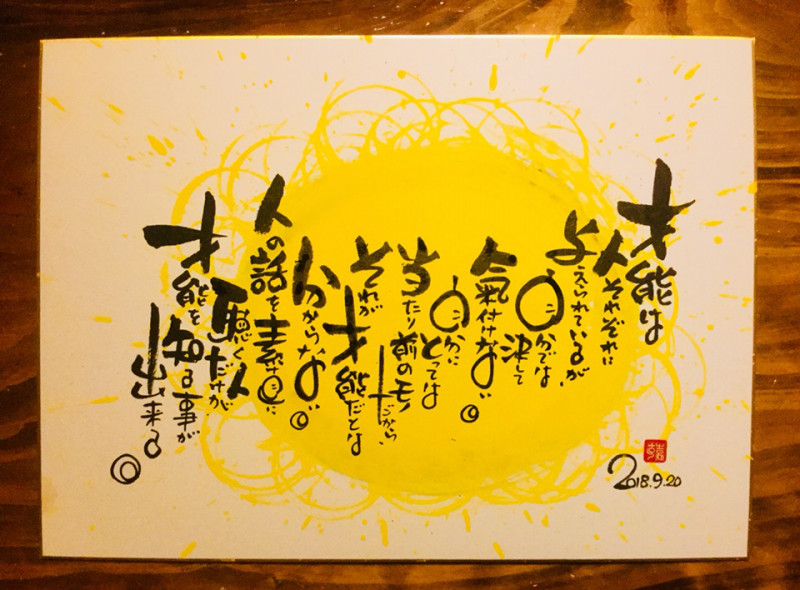 才能は
人それぞれに
与えられているが、
自分では
決して
氣付けない。
自分に
とっては
当たり前のモノ
だから、
それが
才能だとは
分からない。
人の話を素直に
聴く人
だけが
才能を
知る事が
出来る。
2018.9.20